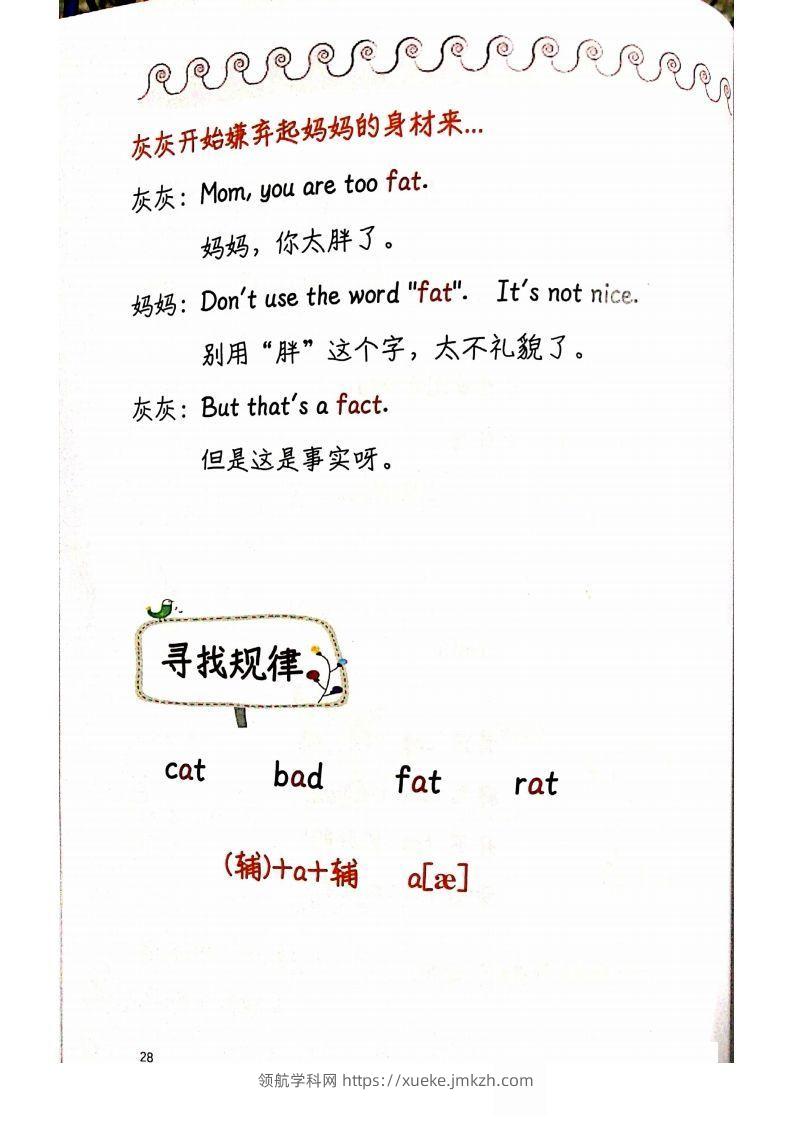 灰灰开始嫌弃起妈妈的身材来...
灰灰：Mom, you are too fat.
妈妈，你太胖了。
妈妈：Don't use the word "fat". It's not nice.
别用“胖”这个字，太不礼貌了。
灰灰：But that's a fact.
但是这是事实呀。
寻找规律
cat bad fat rat
(辅)+a+辅 a[æ]
28
领航学科网 https://xueke.jmkzh.com